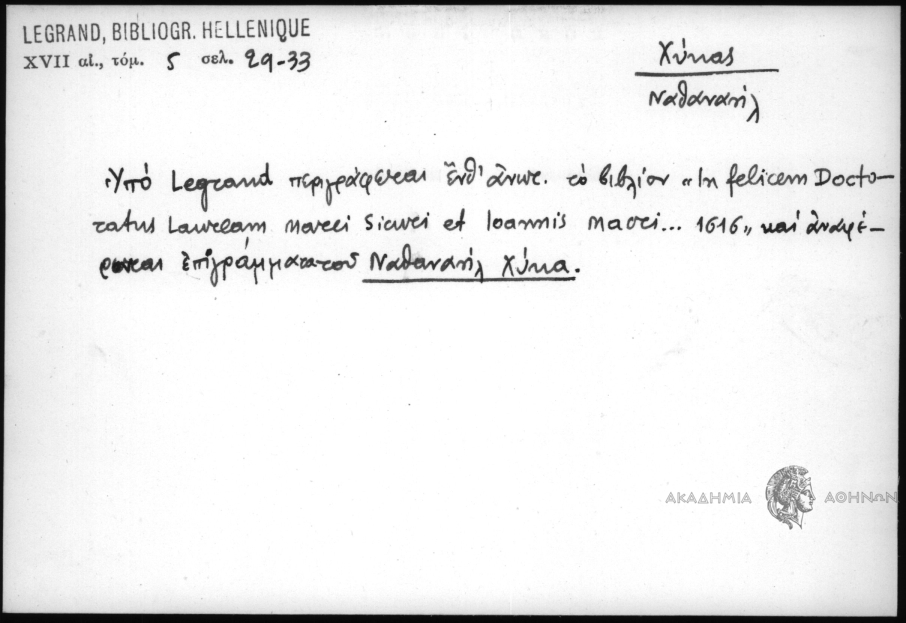 LEGRAND, BIBLIOGR. HELLENIQUE
XVII αἰ., τόμ. 5 σελ. 29-33
Χύκας
Ναθαναήλ
Ὑπό Legrand περιγράφεται ἔνθ' ἄνωτ. τό βιβλίον «In felicem Docto-
ratus Lauream Marci Sicuri et Ioannis Mauri... 1616» καί ἀναφέ-
ρονται ἐπιγράμματα τοῦ Ναθαναήλ Χύκα.
ΑΚΑΔΗΜΙΑ ΑΘΗΝΩΝ